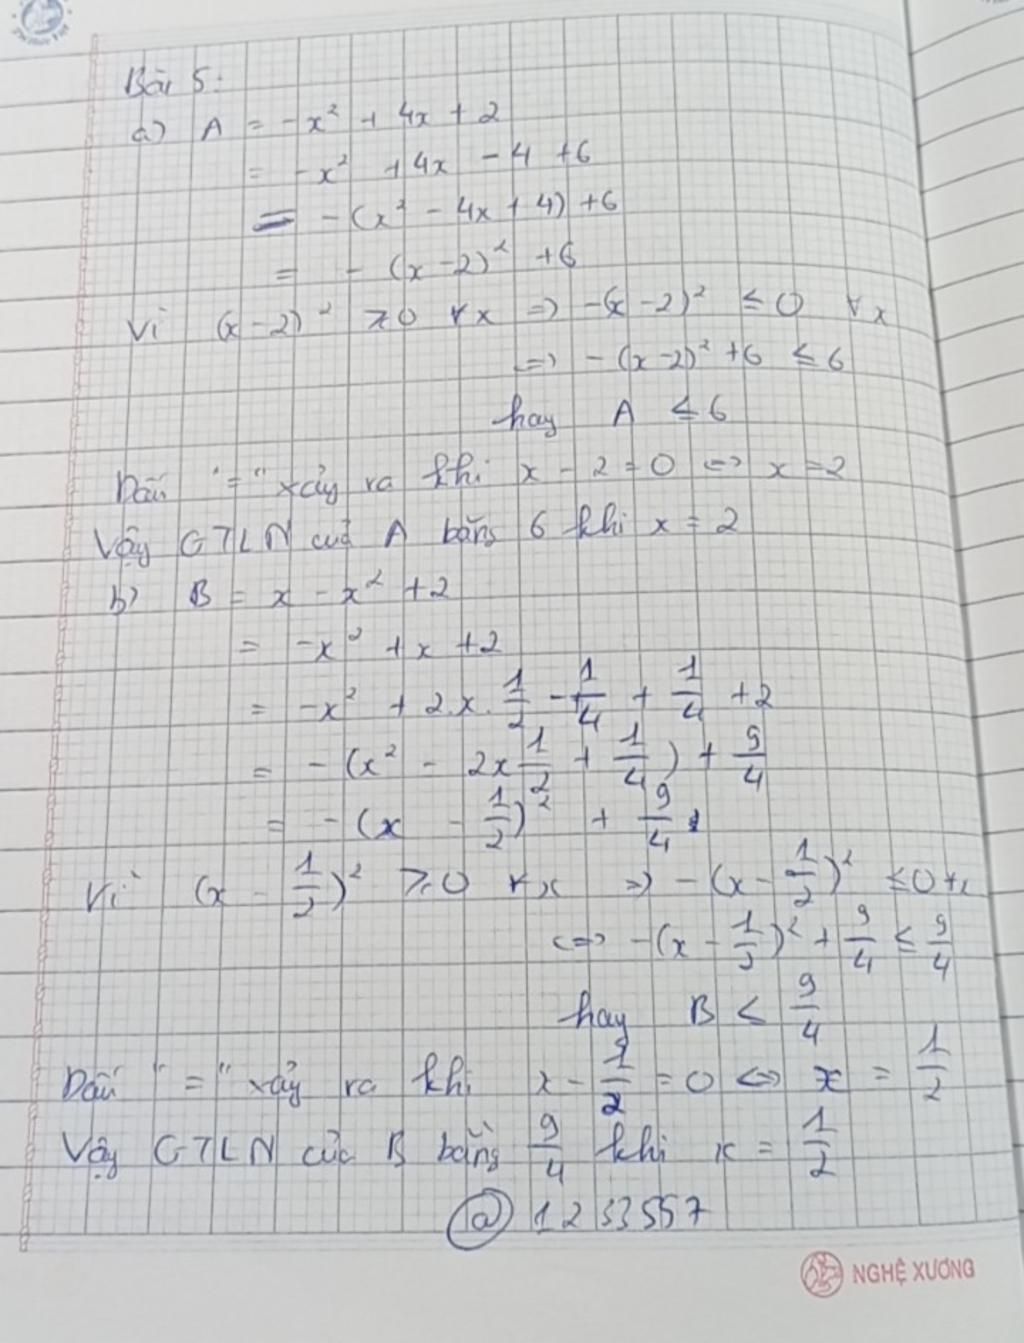 Bài 5:
a) A = -x² + 4x + 2
= -x² + 4x - 4 + 6
= -(x² - 4x + 4) + 6
= - (x - 2)² + 6
Vì (x - 2)² ≥ 0 ∀x => -(x - 2)² ≤ 0 ∀x
<=> - (x - 2)² + 6 ≤ 6
hay A ≤ 6
Dấu "=" xảy ra khi x - 2 = 0 <=> x = 2
Vậy GTLN của A bằng 6 khi x = 2
b) B = x - x² + 2
= -x² + x + 2
= -x² + 2.x.1/2 - 1/4 + 1/4 + 2
= - (x² - 2x 1/2 + 1/4) + 9/4
= - (x - 1/2)² + 9/4
Vì (x - 1/2)² ≥ 0 ∀x => - (x - 1/2)² ≤ 0 ∀x
<=> -(x - 1/2)² + 9/4 ≤ 9/4
hay B ≤ 9/4
Dấu "=" xảy ra khi x - 1/2 = 0 <=> x = 1/2
Vậy GTLN của B bằng 9/4 khi x = 1/2
NGHỆ XƯƠNG